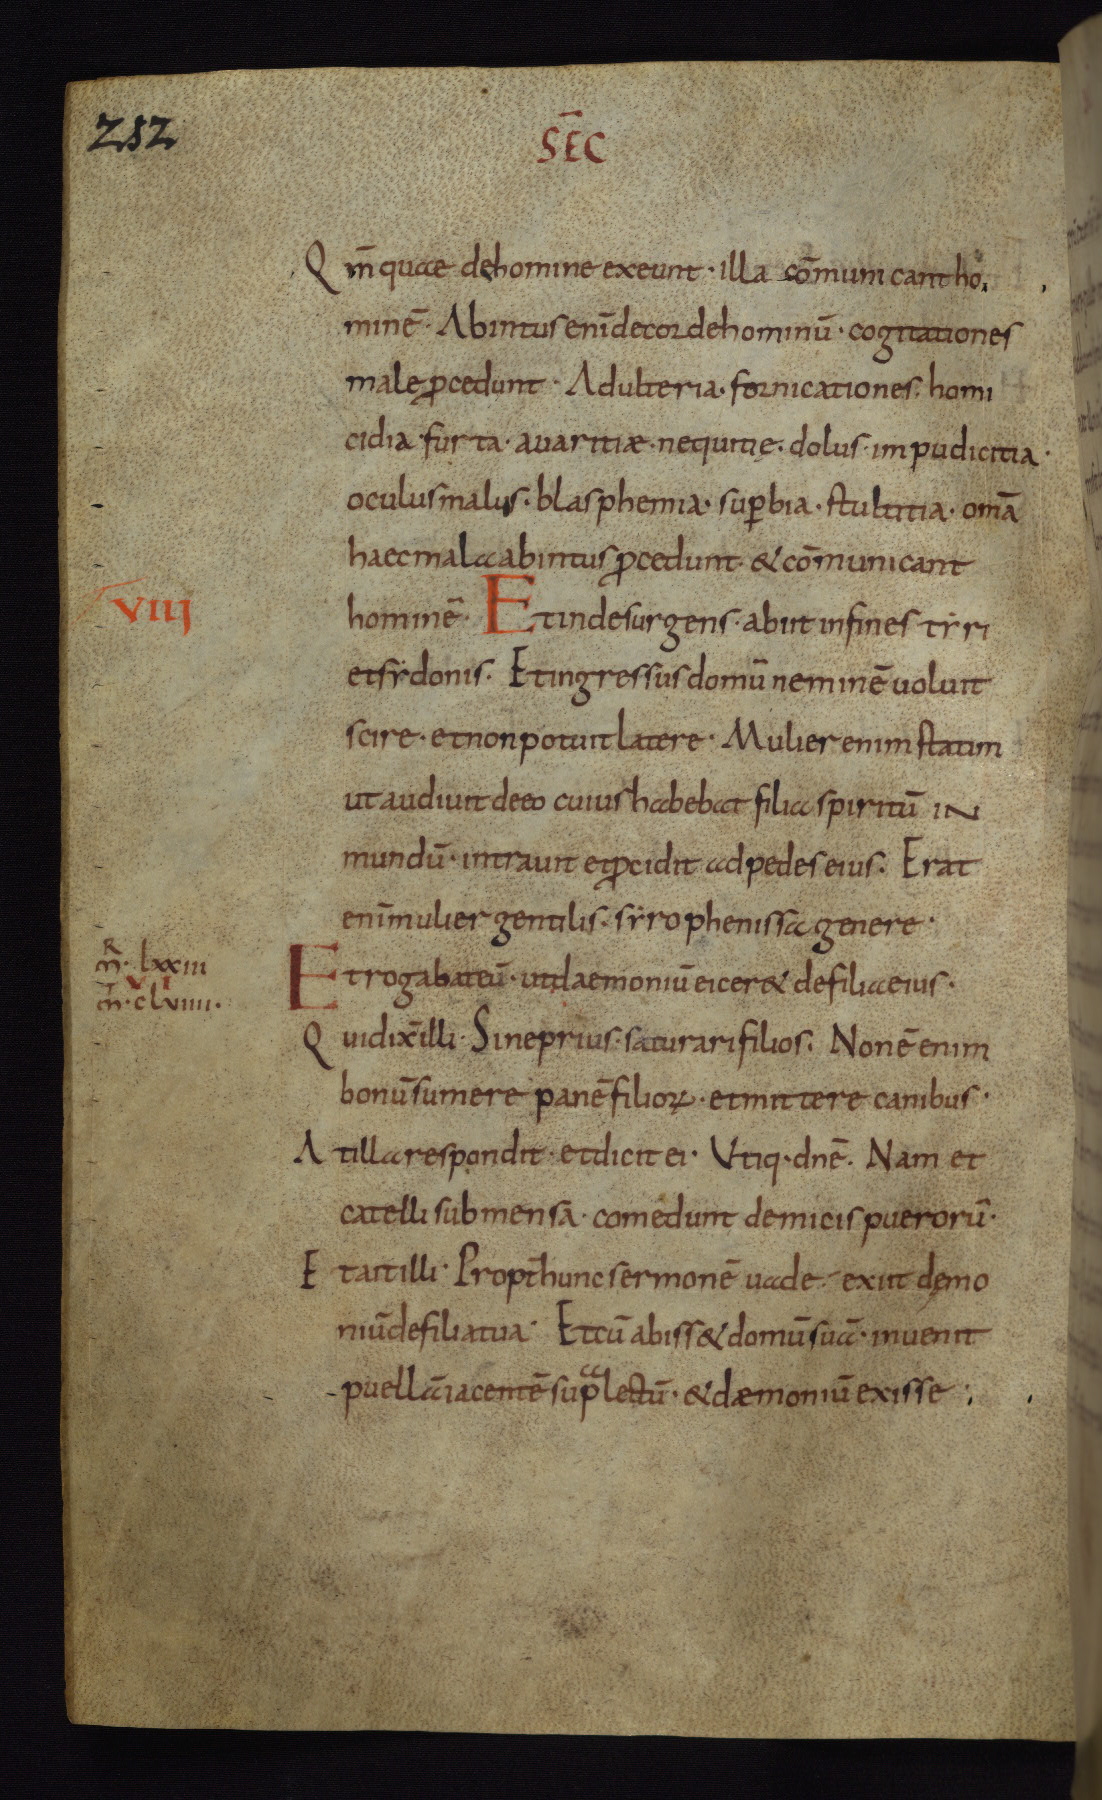 252
SEC̅
Qm̅ quae dehomine exeunt · illa co̅municant ho
mine̅ · Abintus eni̅ decorde hominu̅ · cogitationes
male p̱cedunt · Adulteria · fornicationes · homi
cidia · furta · avaritiæ · nequitię · dolus · impudicitia ·
oculusmalus · blasphemia · sup̱bia · stultitia · om̅a
haecmala abintus p̱cedunt · & co̅municant
VIII
homine̅ · Etindesurgens · abiit infines tẏri
etsẏdonis · Etingressus domu̅ nemine̅ uoluit
scire · etnonpotuit latere · Mulier enim statim
ut audiuit deeo cuius habebat filia spiritu̅ in
mundu̅ · intrauit etp̱cidit adpedes eius · Erat
eni̅mulier gentilis · sẏrophenissa genere ·
R
m̅ · lxxiii
VI
m̅ · clviiii ·
Etrogabateu̅ · utdaemoniu̅ eicer& defiliaeius ·
Quidix̅illi · Sineprius · saturarifilios · None̅ enim
bonu̅sumere pane̅filioꝝ · etmittere canibus ·
Atillarespondit · etdicit ei · Utiq · dne̅ · Nam et
catelli submensa̅ · comedunt demicis pueroru̅ ·
Etaitilli · Propt̅hunc sermone̅ uade · exiit demo
niu̅defiliatua · Etcu̅ abiss& domu̅sua̅ · inuenit
puella̅iacente̅ sup̱a lectu̅ · & dæmoniu̅ exisse ·